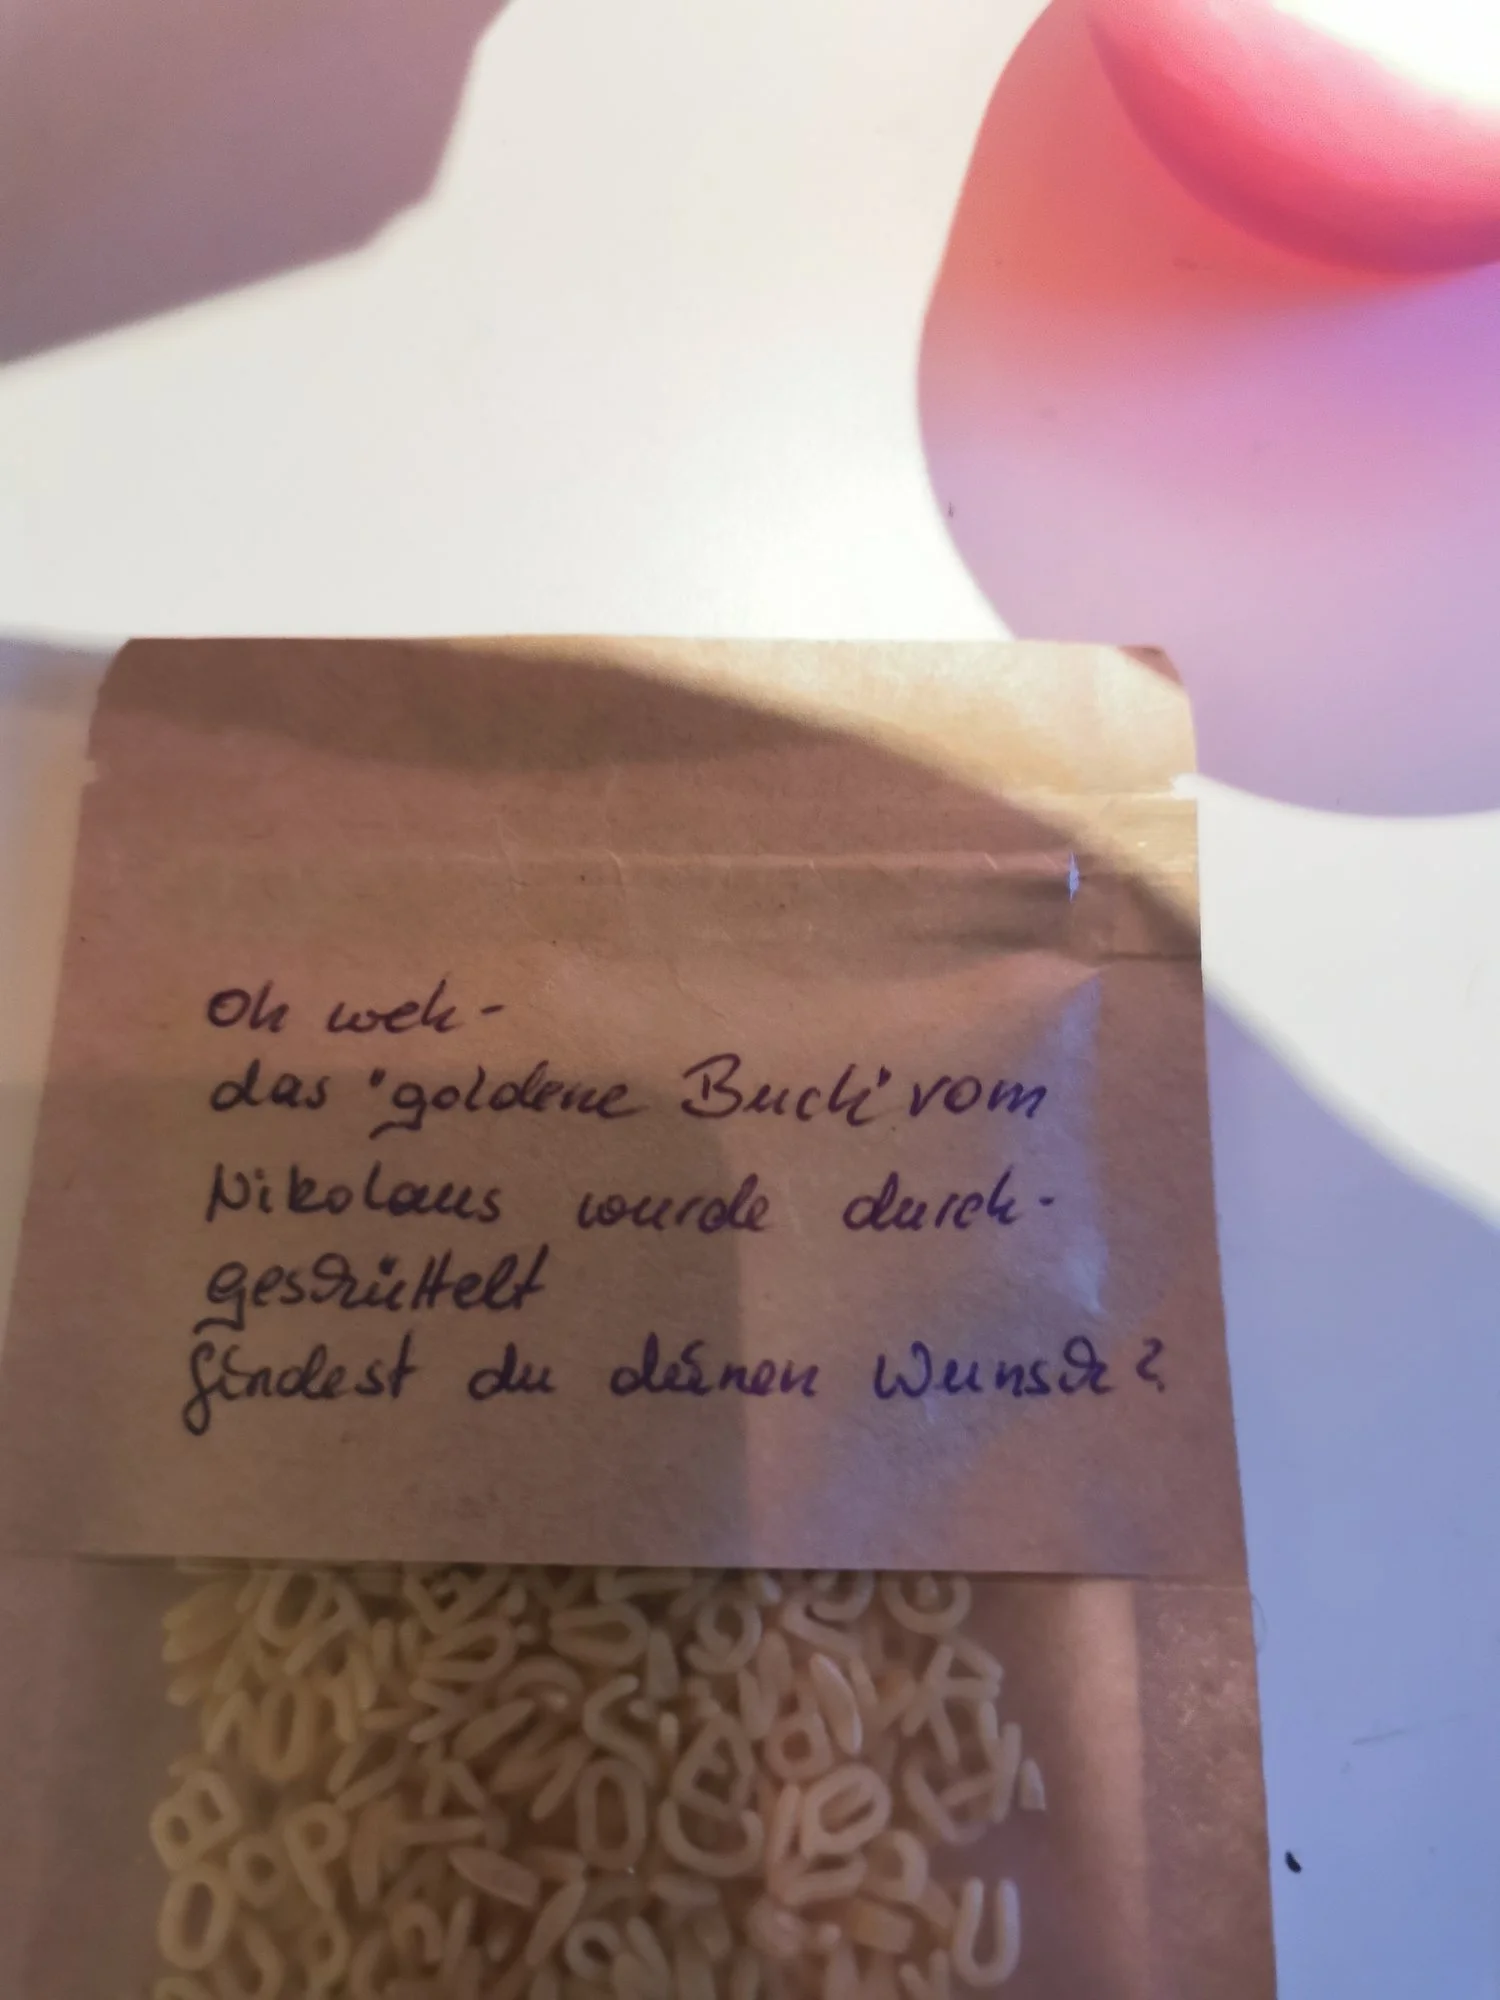 Oh weh-
das "goldene Buch" vom
Nikolaus wurde durch-
geschüttelt
findest du deinen Wunsch?